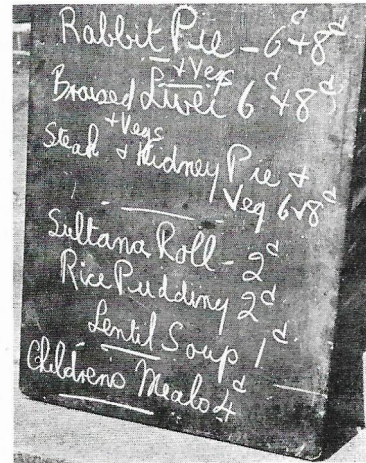 Rabbit Pie - 6d & 8d
+ Vegs
Braised Liver 6d & 8d
+ Vegs
Steak & Kidney Pie &
Veg 6 & 8d
Sultana Roll - 2d
Rice Pudding 2d
Lentil Soup 1d
Childrens Meals 4d